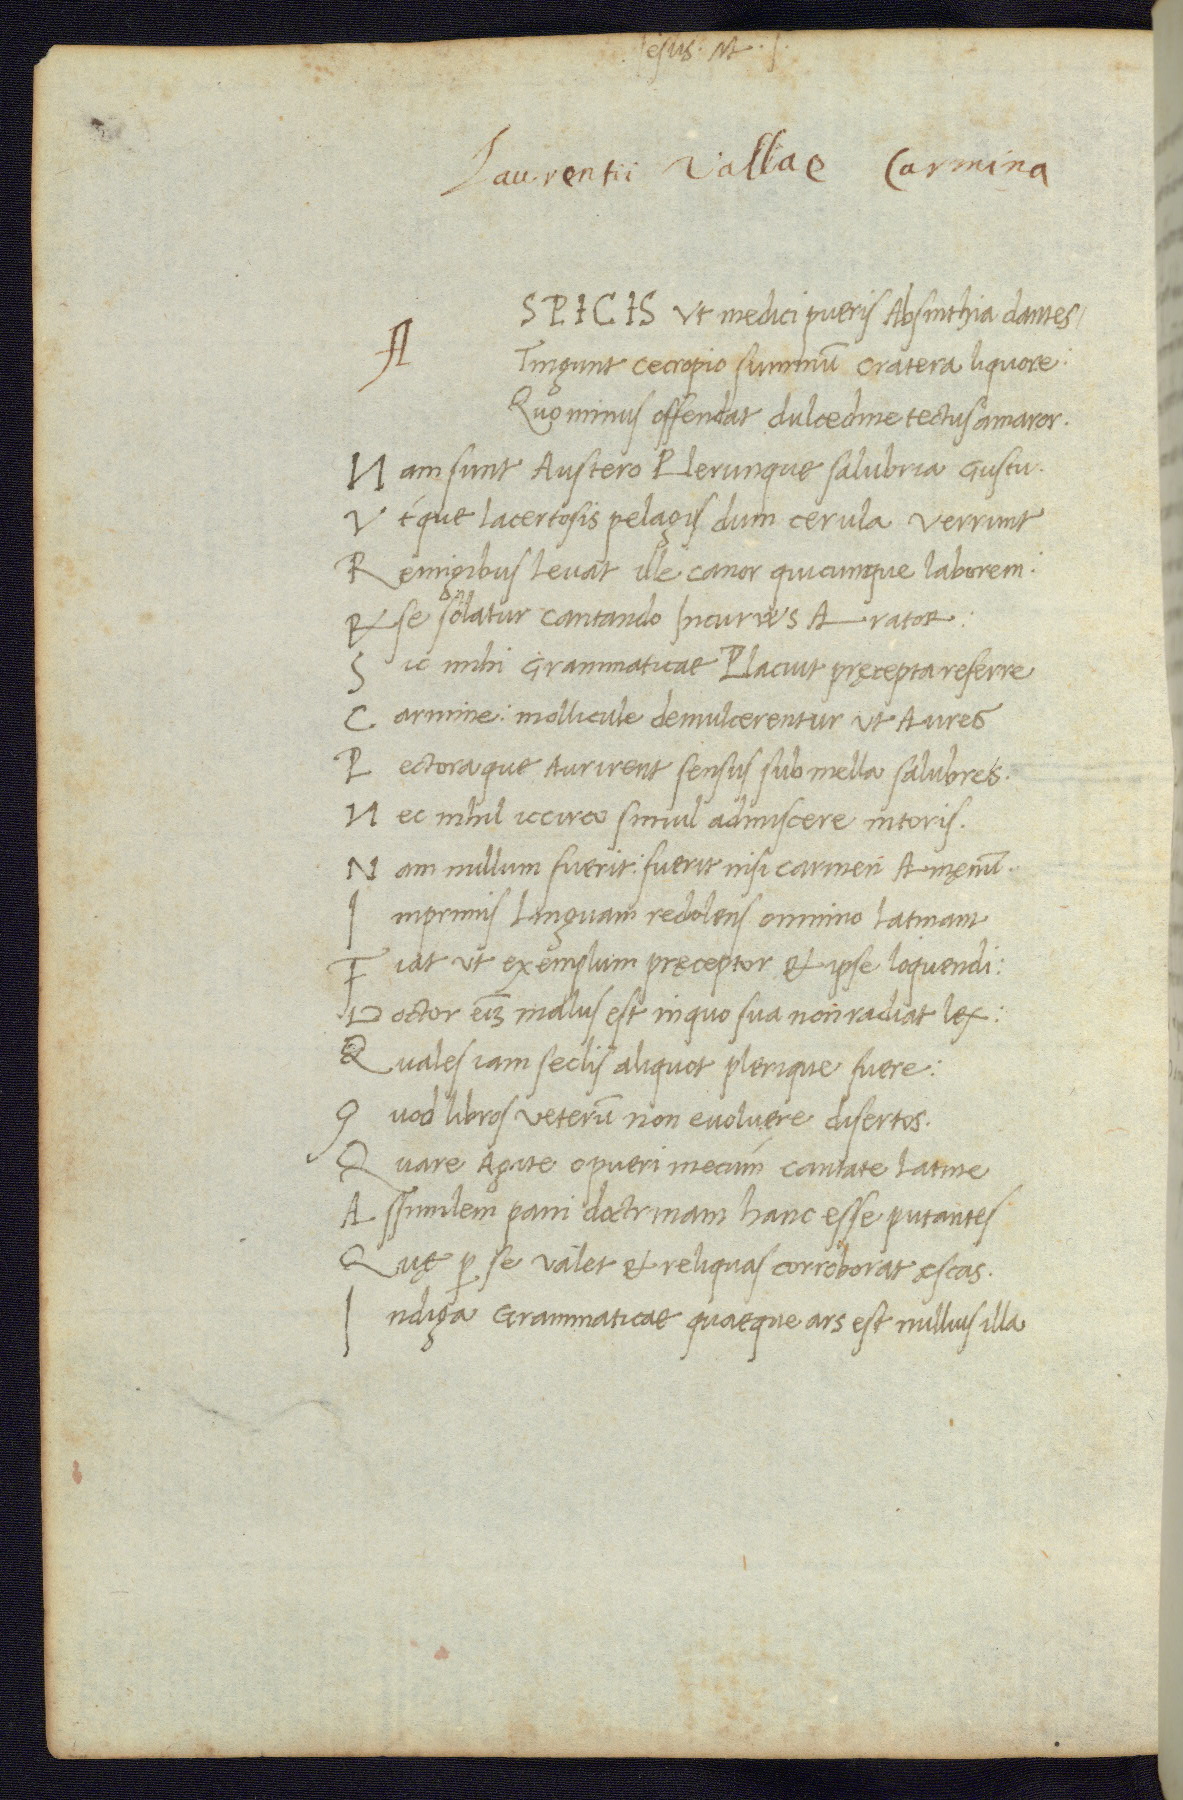 Iesus. M.
Laurentii Vallae Carmina
ASPICIS Vt medici pueris Absinthia dantes/
Tingunt cecropio summũ cratera liquore:
Quo minus offendat dulcedine tectus amaror.
Nam sunt Austero Plerunque salubria Gustu.
Vtque lacertosis pelagis dum cerula verrunt
Remigibus leuat ille canor quicumque laborem:
Et se solatur cantando Incurvus Arator:
Sic mihi Grammaticae Placuit pręcepta referre
Carmine: mollicule demulcerentur ut Aures
Pectoraque Aurirent sensus sub mella salubres.
Nec nihil iccirco simul admiscere nitoris.
Nam nullum fuerit: fuerit nisi carmen Amęnũ.
Inprimis Linguam redolens omnino latinam
Fiat ut exemplum pręceptor et ipse loquendi:
Doctor eĩ malus est in quo sua non radiat lex:
Quales iam seclis aliquot plerique fuere:
Quod libros veterũ non euoluere disertos.
Quare Agite o pueri mecum cantate latine
Assimilem pani doctrinam hanc esse putantes
Quę ꝑ se valet et reliquas corroborat ęscas.
Indiga Grammaticae quaeque ars est nullius illa